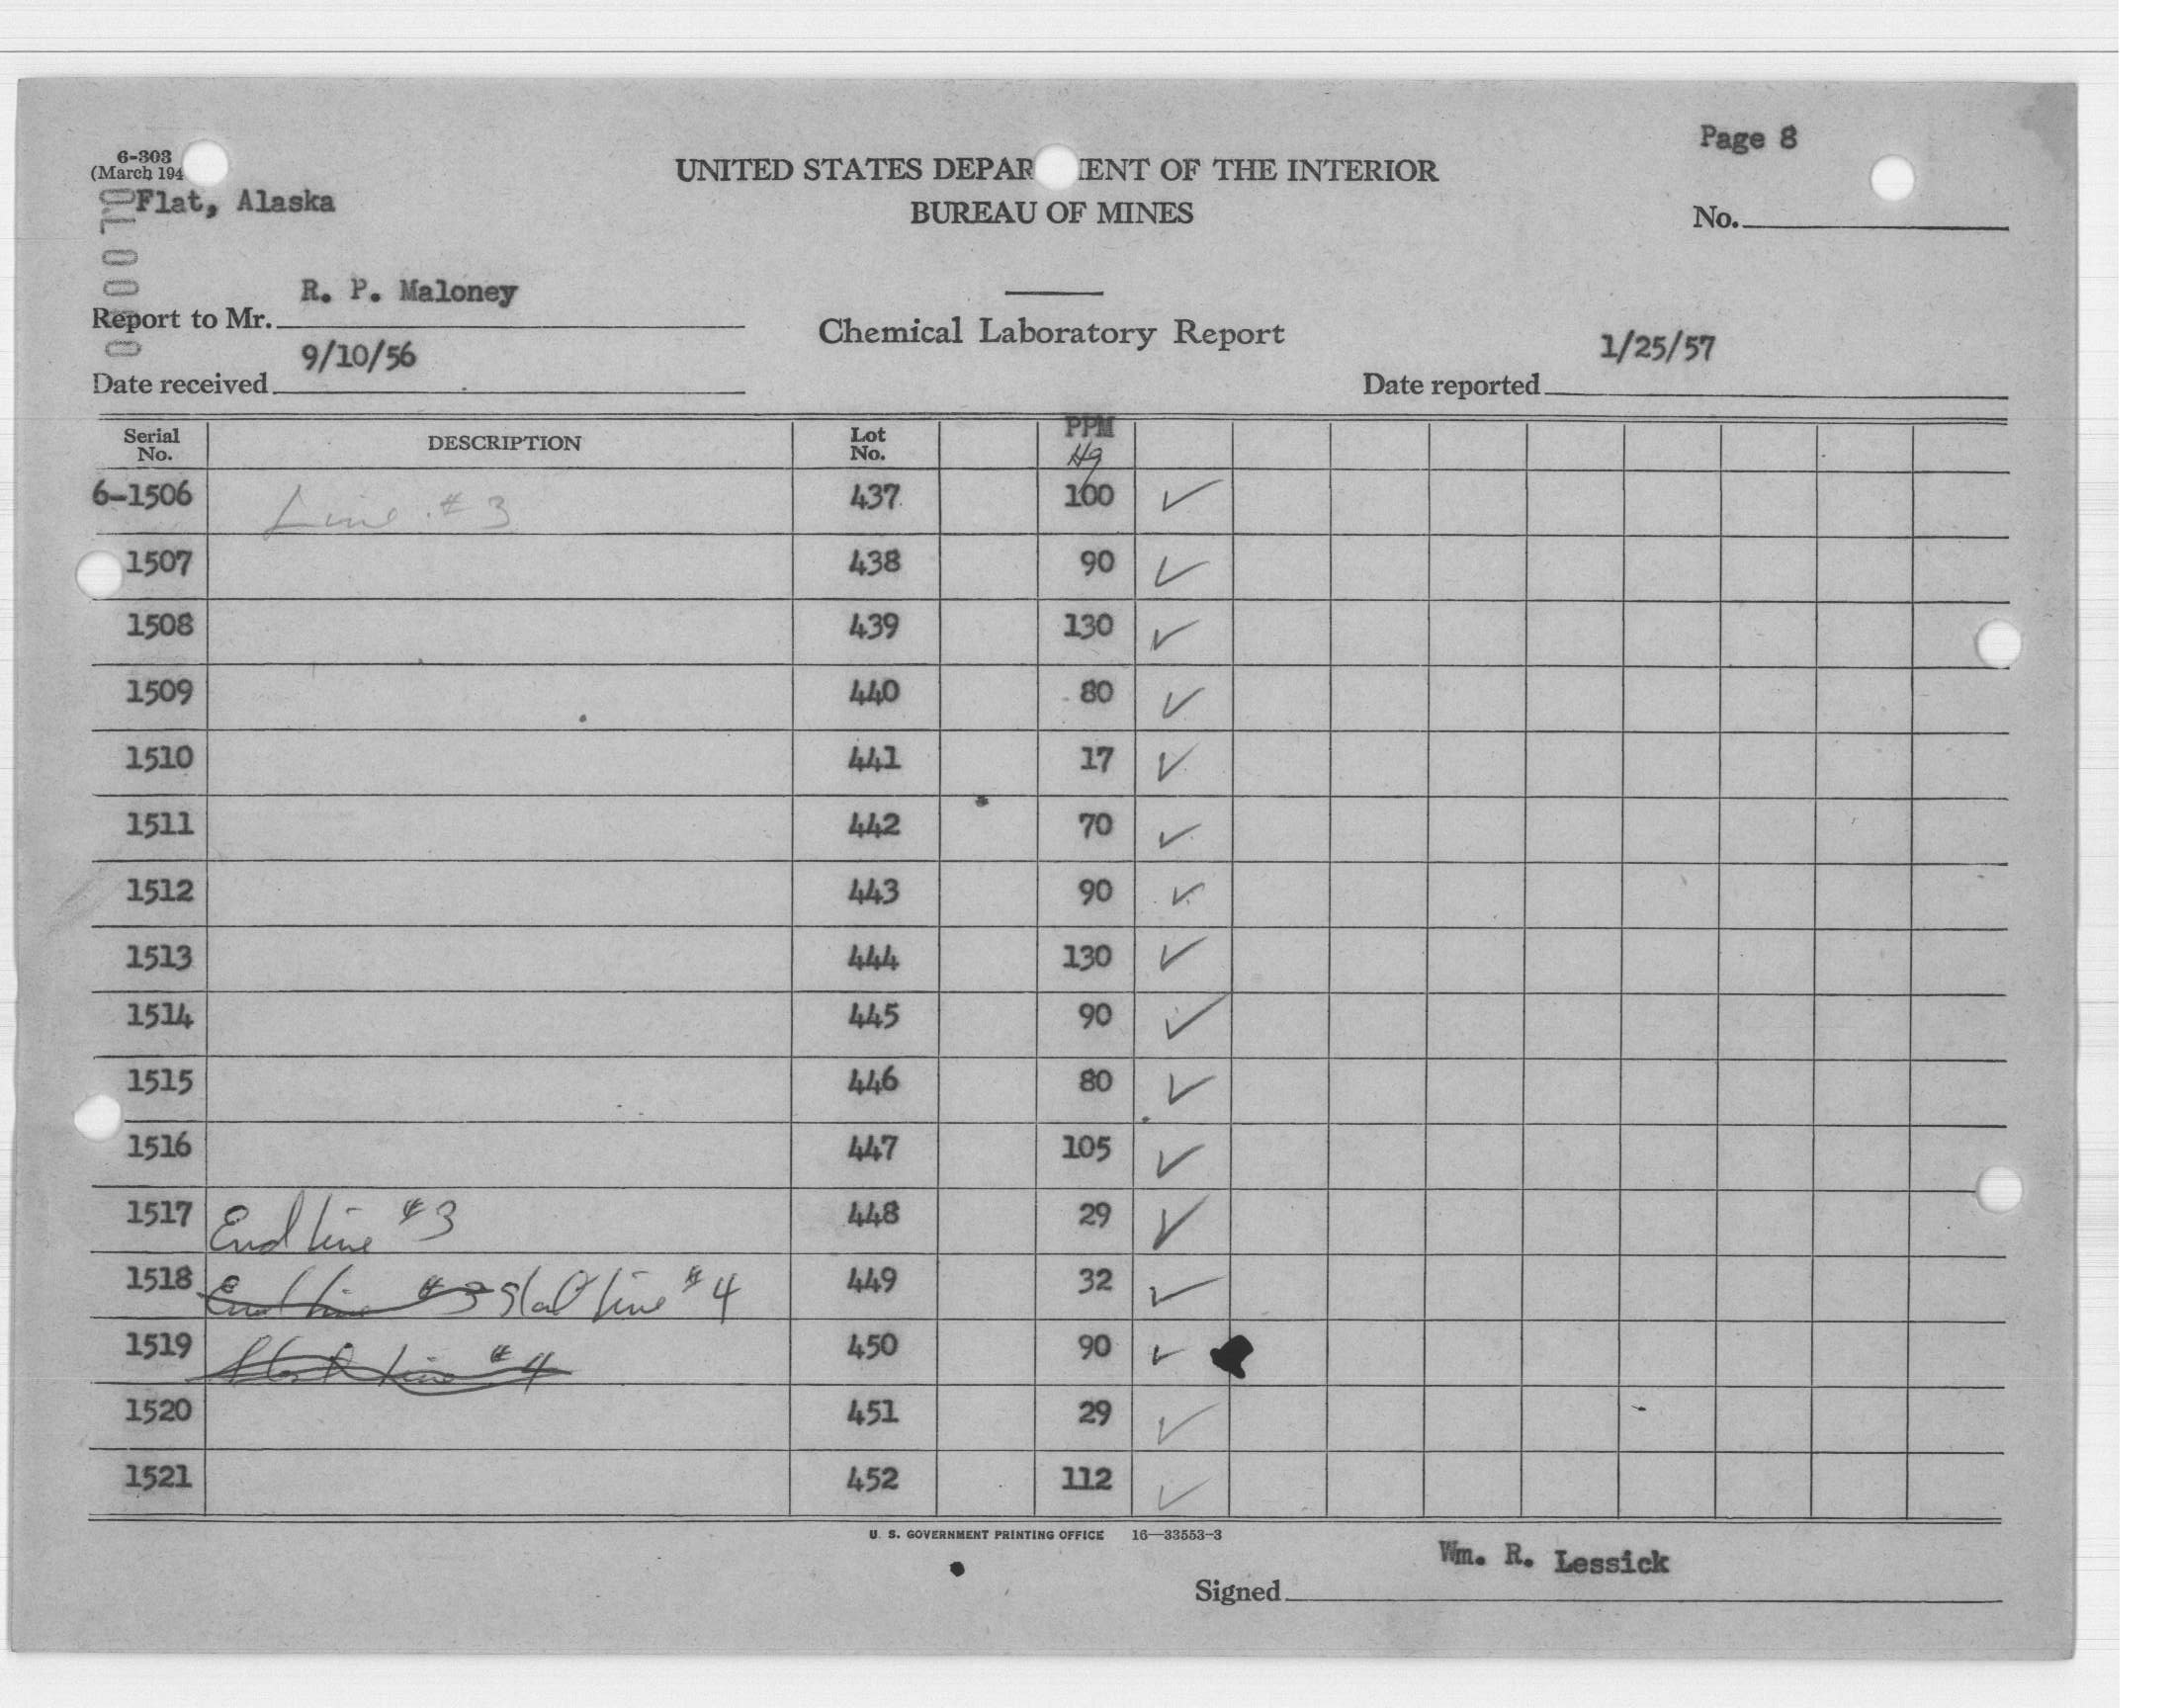 Page 8
6-303
(March 194
UNITED STATES DEPAR ENT OF THE INTERIOR
Flat, Alaska
BUREAU OF MINES
No.
R. P. Maloney
Report to Mr.
Chemical Laboratory Report
9/10/56
1/25/57
Date received
Date reported
Serial No. DESCRIPTION Lot No. PPM Hg
6-1506 Line #3 437 100 ✓
1507 438 90 ✓
1508 439 130 ✓
1509 440 80 ✓
1510 441 17 ✓
1511 442 70 ✓
1512 443 90 ✓
1513 444 130 ✓
1514 445 90 ✓
1515 446 80 ✓
1516 447 105 ✓
1517 End line #3 448 29 ✓
1518 End line #3 Start line #4 449 32 ✓
1519 Start line #4 450 90 ✓
1520 451 29 ✓
1521 452 112 ✓
U. S. GOVERNMENT PRINTING OFFICE 16—33553-3
Wm. R. Lessick
Signed